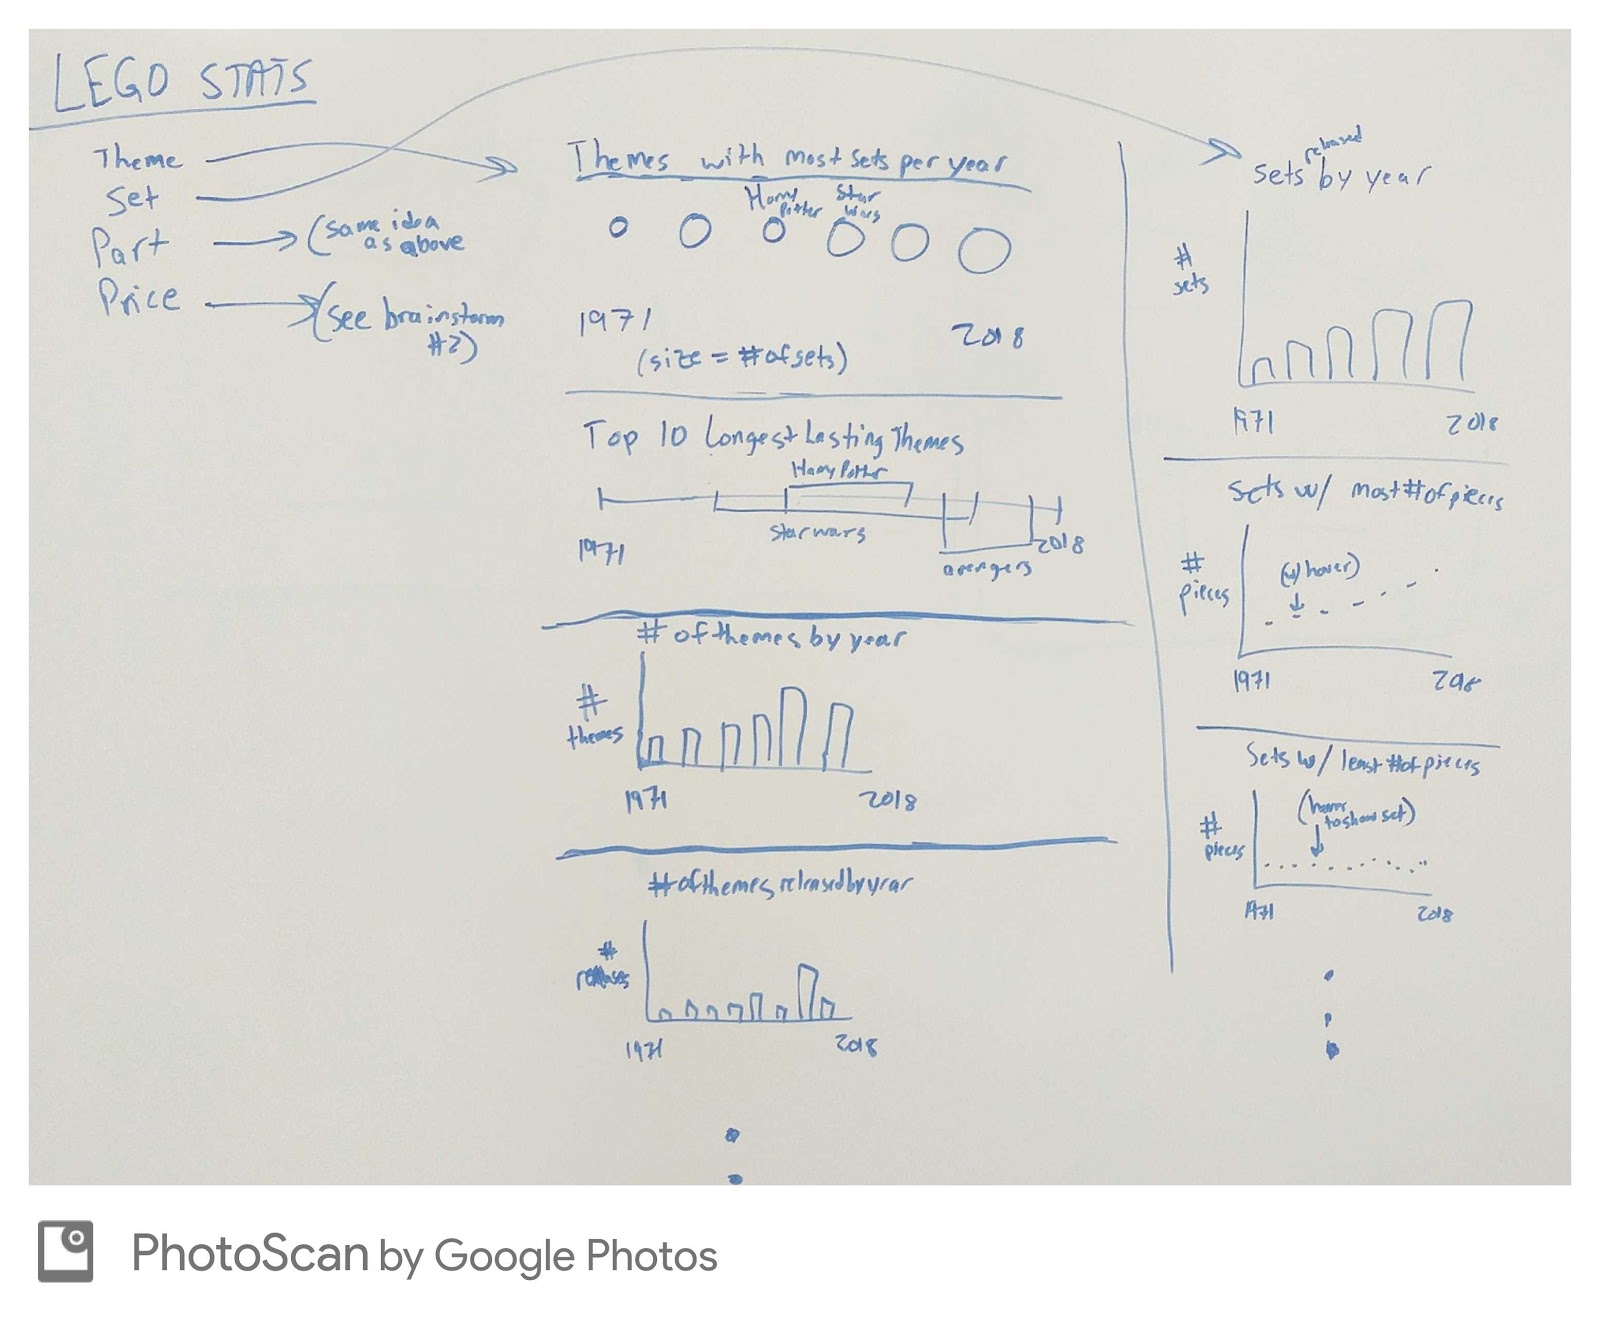 LEGO STATS
Theme
Set
Part
(same idea
as above
Price
(see brainstorm
#2)
Themes with most sets per year
Harry
Potter
Star
Wars
1971
2018
(size = # of sets)
Top 10 Longest Lasting Themes
Harry Potter
Star wars
1971
2018
avengers
# of themes by year
#
themes
1971
2018
# of themes released by year
#
releases
1971
2018
released
Sets by year
#
sets
1971
2018
Sets w/ most # of pieces
#
pieces
(w/ hover)
1971
2018
Sets w/ least # of pieces
#
pieces
(hover
to show set)
1971
2018
PhotoScan by Google Photos